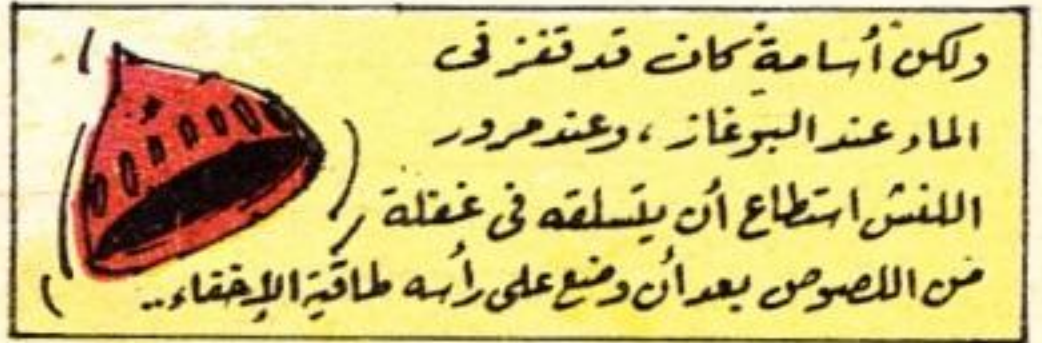 ولكن أسامة كان قد قفز فى
الماء عند البوغاز، وعند مرور
اللنش استطاع أن يتسلقه فى غفلة
من اللصوص بعد أن وضع على رأسه طاقية الإخفاء..